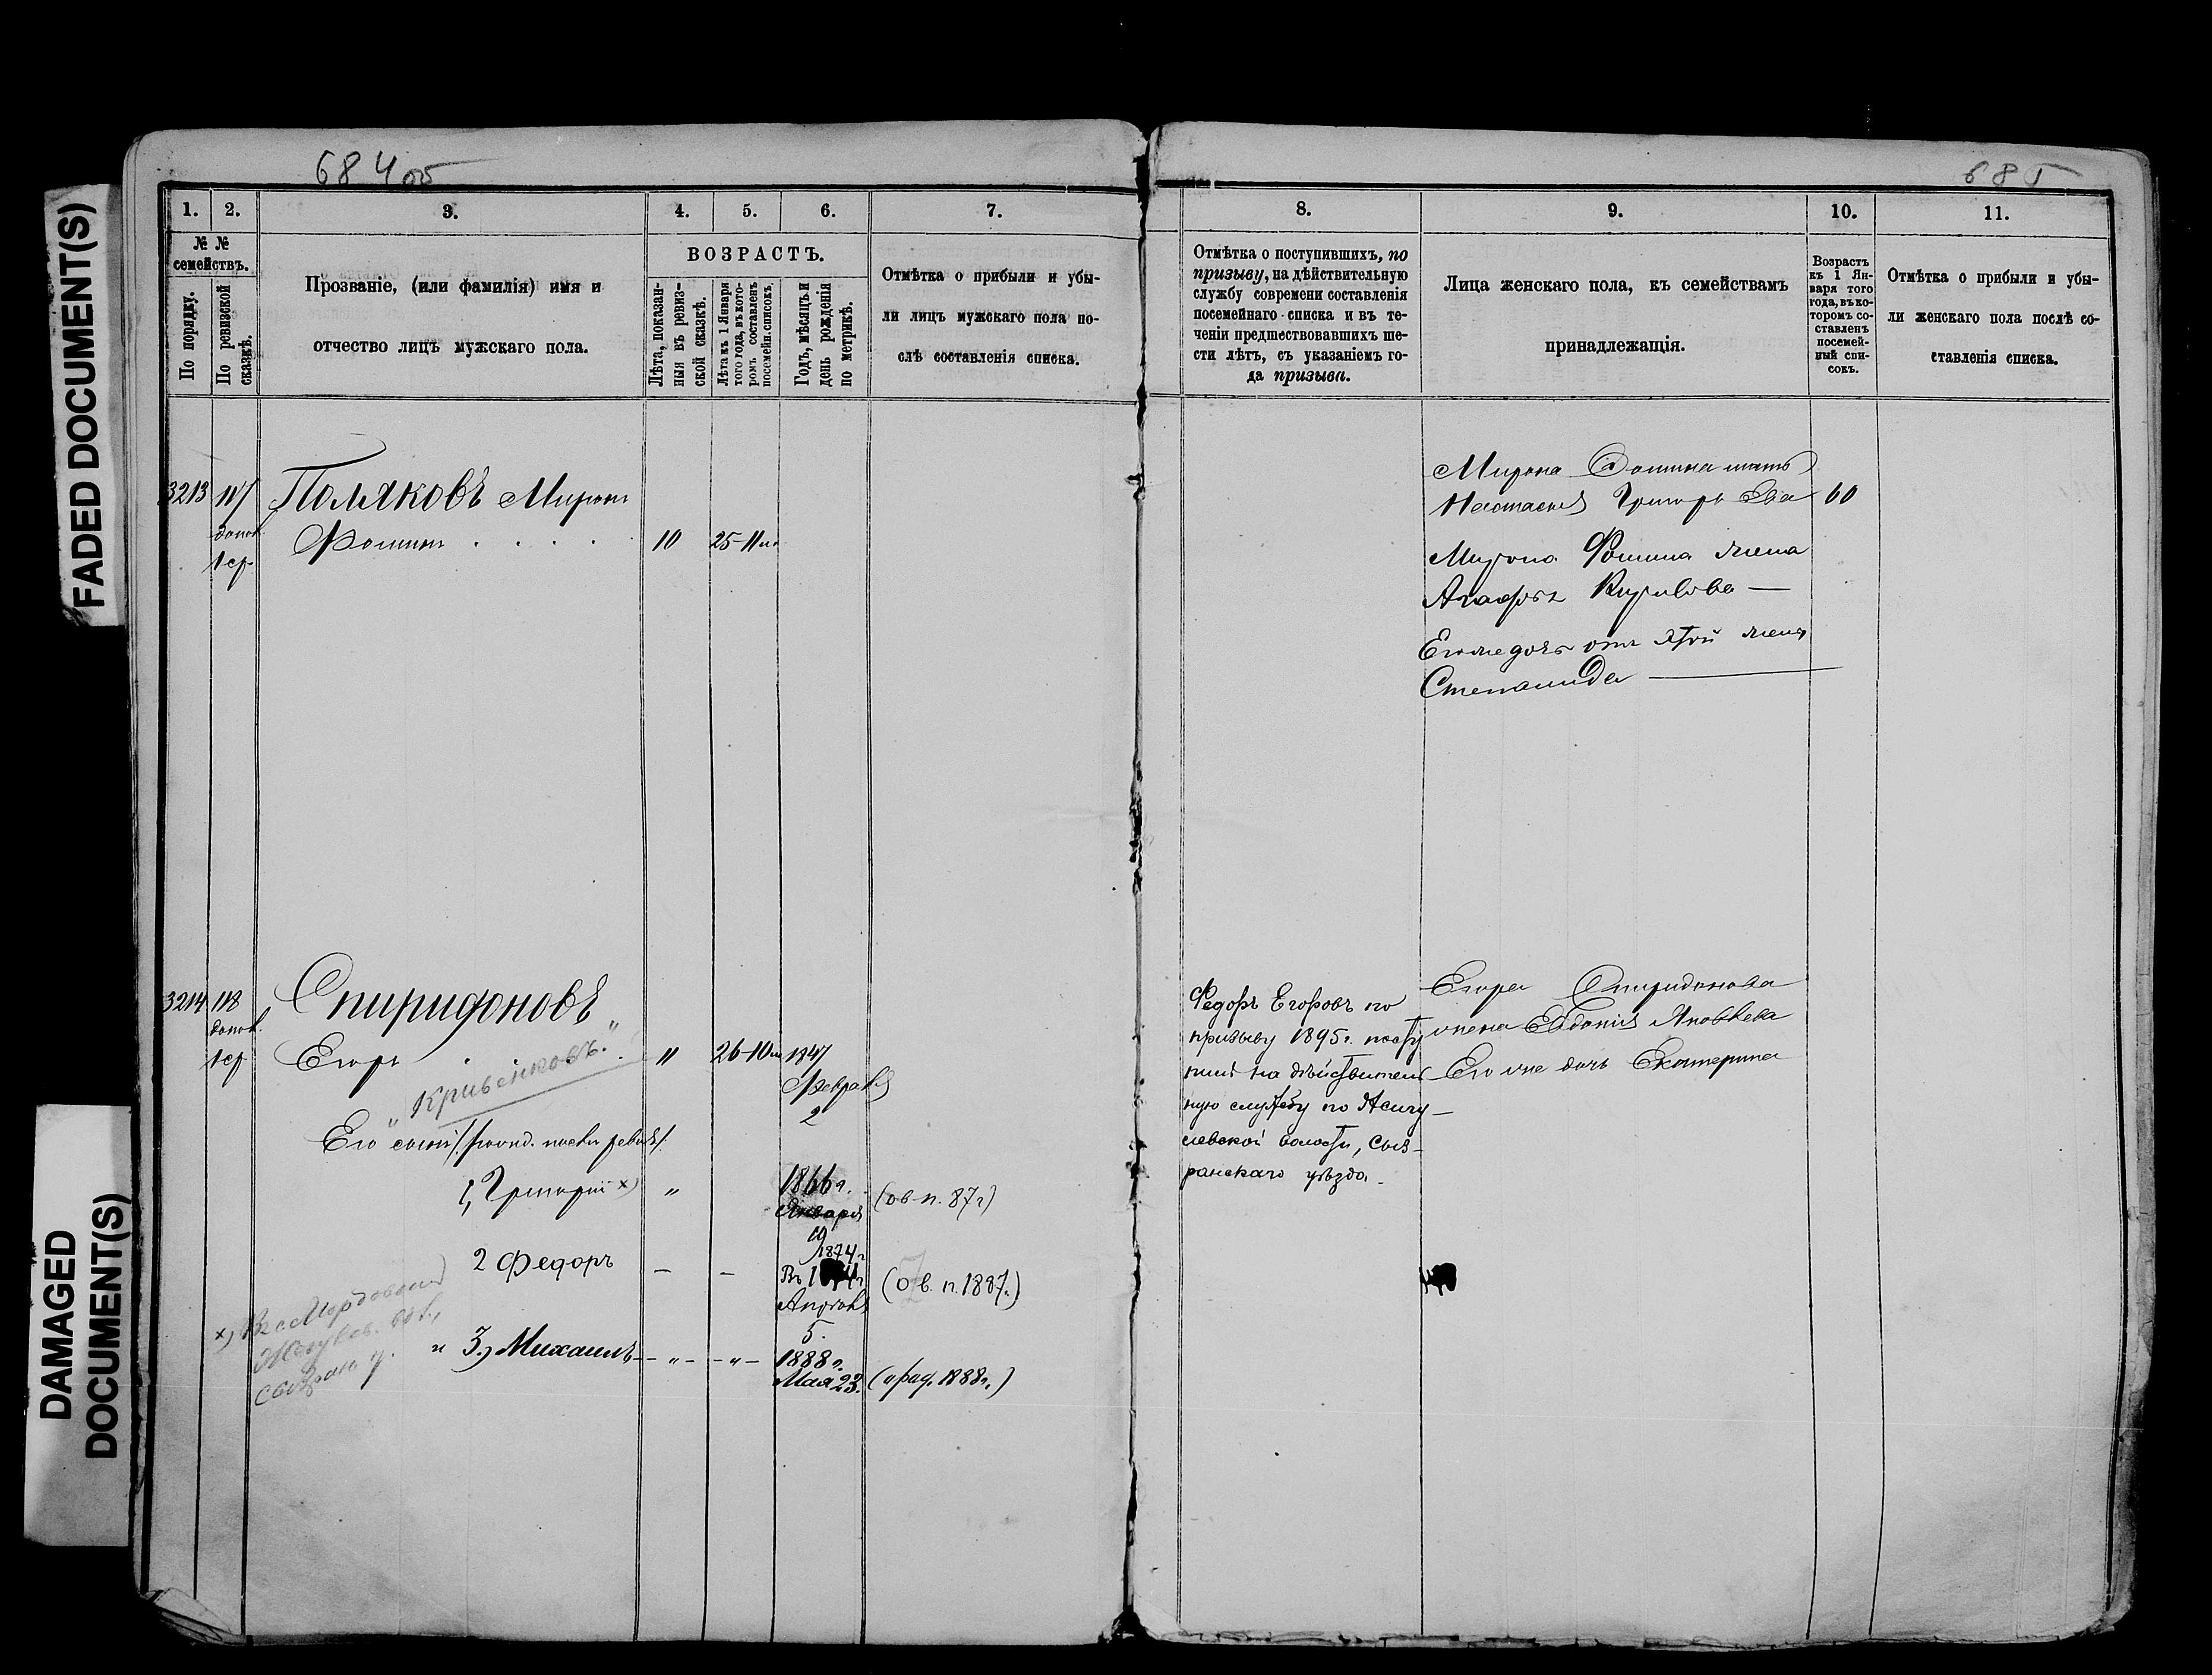 FADED DOCUMENT(S)
DAMAGED
DOCUMENT(S)
684 об
1.
2.
3.
4.
5.
6.
7.
№ №
семействъ.
По порядку.
По ревизской
сказкѣ.
Прозваніе, (или фамилія) имя и
отчество лицъ мужскаго пола.
ВОЗРАСТЪ.
Лѣта, показан-
ныя въ ревиз-
ской сказкѣ.
Лѣта къ 1 Января
того года, въ кото-
ромъ составленъ
посемейн. списокъ.
Годъ, мѣсяцъ и
день рожденія
по метрикѣ.
Отмѣтка о прибыли и убы-
ли лицъ мужскаго пола по-
слѣ составленія списка.
3213
117
допол.
1 ср
Поляковъ Миронъ
Фоминъ . . . .
10
25-11 м
3214
118
допол.
1 ср
Спиридоновъ
Егоръ . . .
"
26-10 м
1847
Февраля
2
"Кривенковъ."
Его сыновья
1, Григорій х)
"
1866 г.
Января
19
(ов. п. 87 г)
2 Федоръ
–
–
1874 г.
Въ
Апрѣля
5.
(ов. п. 1887.)
х) Въ с. Мордовой
Жегулев. вол.,
Сызран. у.
и 3.) Михаилъ
– " –
– " –
1888 г.
Мая 23.
(ораф. 1888 г.)
685
8.
9.
10.
11.
Отмѣтка о поступившихъ, по
призыву, на дѣйствительную
службу современи составленія
посемейнаго списка и въ те-
ченіи предшествовавшихъ ше-
сти лѣтъ, съ указаніемъ го-
да призыва.
Лица женскаго пола, къ семействамъ
принадлежащія.
Возрастъ
къ 1 Ян-
варя того
года, въ ко-
торомъ со-
ставленъ
посемей-
ный спи-
сокъ.
Отмѣтка о прибыли и убы-
ли женскаго пола послѣ со-
ставленія списка.
Мирона Фомина мать
Настасья Григорьева 60
Мирона Фомина жена
Агафья Кирилова —
Его же дочь отъ этой жены
Степанида —
Федоръ Егоровъ по
призыву 1895 г. посту
пилъ на дѣйствитель
ную службу по Жегу–
левской волости, Сыз–
ранскаго уѣзда.
Егора Спиридонова
жена Евдокія Яковлева
Его же дочь Екатерина